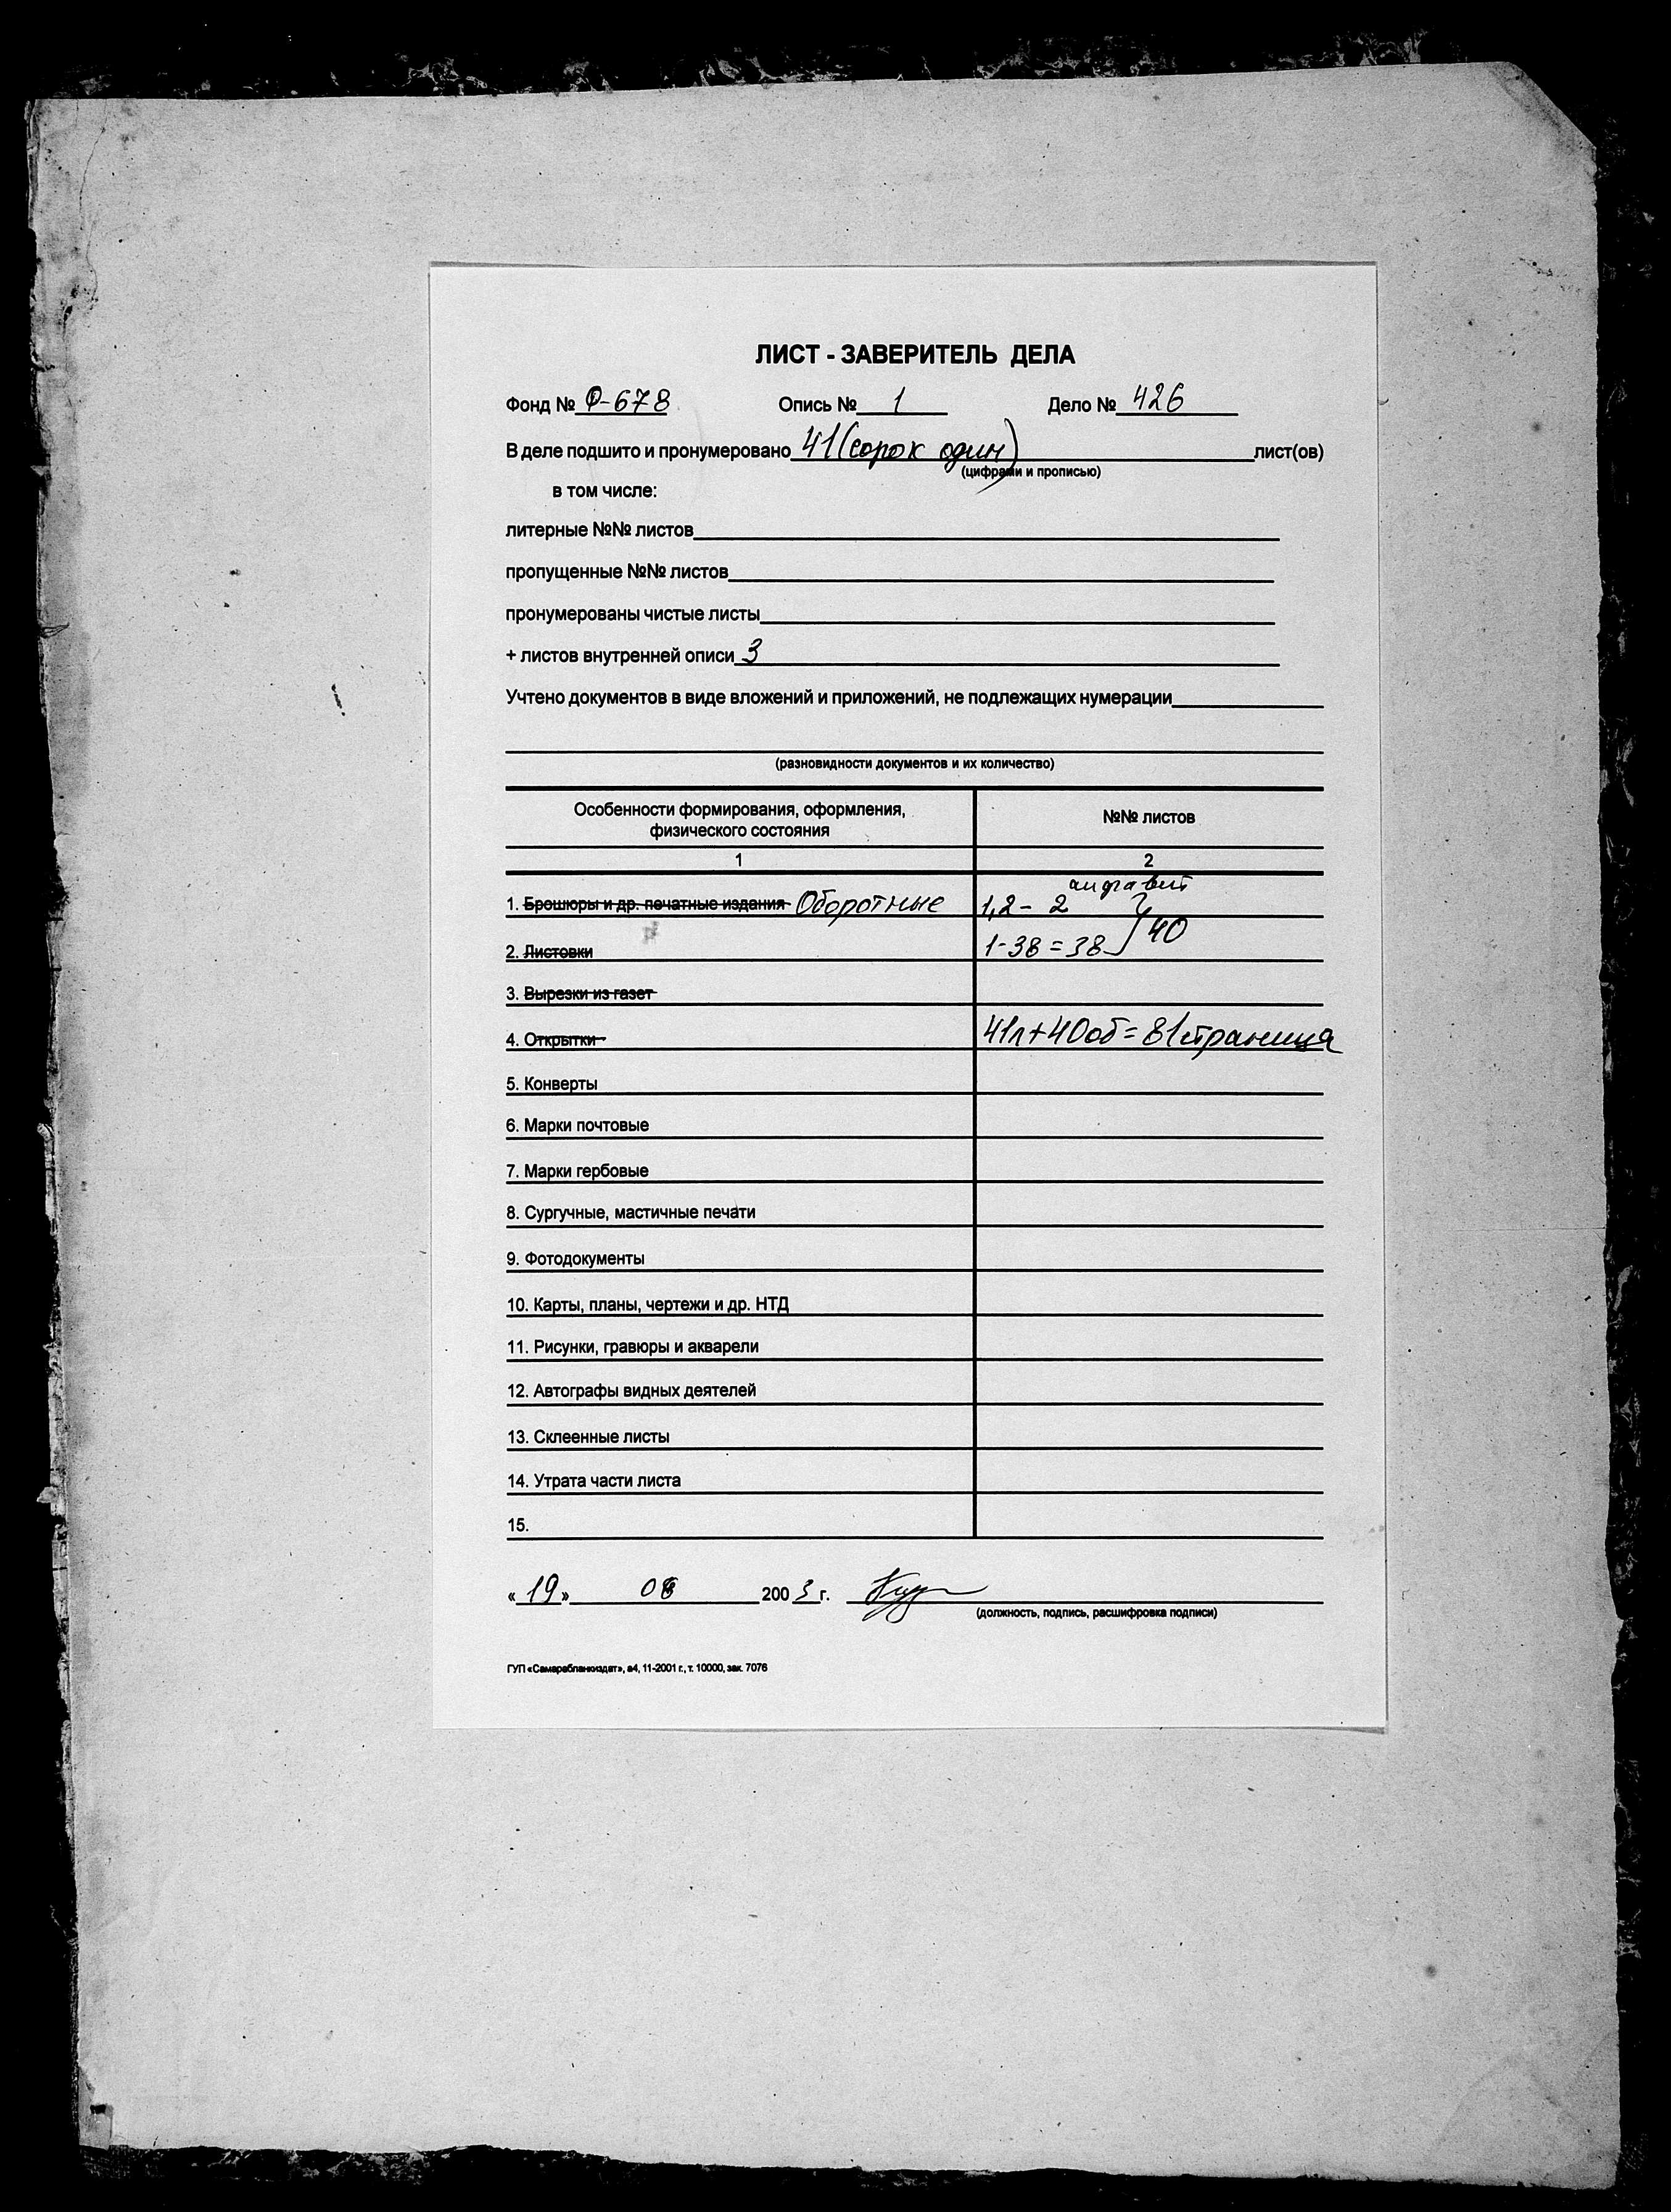 ЛИСТ - ЗАВЕРИТЕЛЬ ДЕЛА
Фонд № Ф-678 Опись № 1 Дело № 426
В деле подшито и пронумеровано 41 (сорок один) лист(ов)
(цифрами и прописью)
в том числе:
литерные №№ листов
пропущенные №№ листов
пронумерованы чистые листы
+ листов внутренней описи 3
Учтено документов в виде вложений и приложений, не подлежащих нумерации
(разновидности документов и их количество)
Особенности формирования, оформления,
физического состояния
№№ листов
1 2
алфавит
1. Брошюры и др. печатные издания Оборотные 1,2 - 2
2. Листовки 1-38 = 38 } 40
3. Вырезки из газет
4. Открытки 41л + 40об = 81 страница
5. Конверты
6. Марки почтовые
7. Марки гербовые
8. Сургучные, мастичные печати
9. Фотодокументы
10. Карты, планы, чертежи и др. НТД
11. Рисунки, гравюры и акварели
12. Автографы видных деятелей
13. Склеенные листы
14. Утрата части листа
15.
« 19 » 200 3 г.
(должность, подпись, расшифровка подписи)
ГУП «Самарабланкиздат», а4, 11-2001 г., т. 10000, зак. 7076